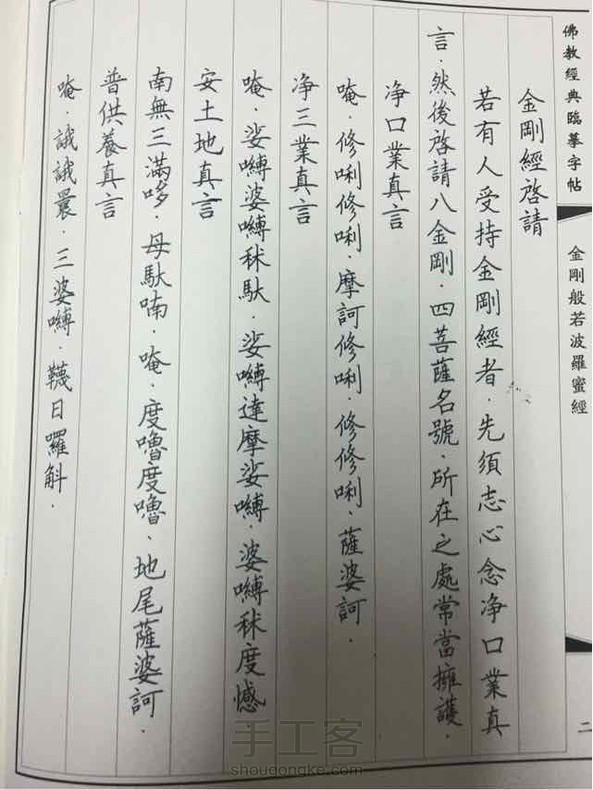 佛教經典臨摹字帖
金剛般若波羅蜜經
二
金剛經啓請
若有人受持金剛經者．先須志心念净口業真
言．然後啓請八金剛．四菩薩名號．所在之處常當擁護．
净口業真言
唵．修唎修唎．摩訶修唎．修修唎．薩婆訶．
净三業真言
唵．娑嚩婆嚩秫馱．娑嚩達摩娑嚩．婆嚩秫度憾．
安土地真言
南無三滿哆．母馱喃．唵．度嚕度嚕．地尾薩婆訶．
普供養真言
唵．誐誐曩．三婆嚩．韈日囉斛．
手工客
shougongke.com